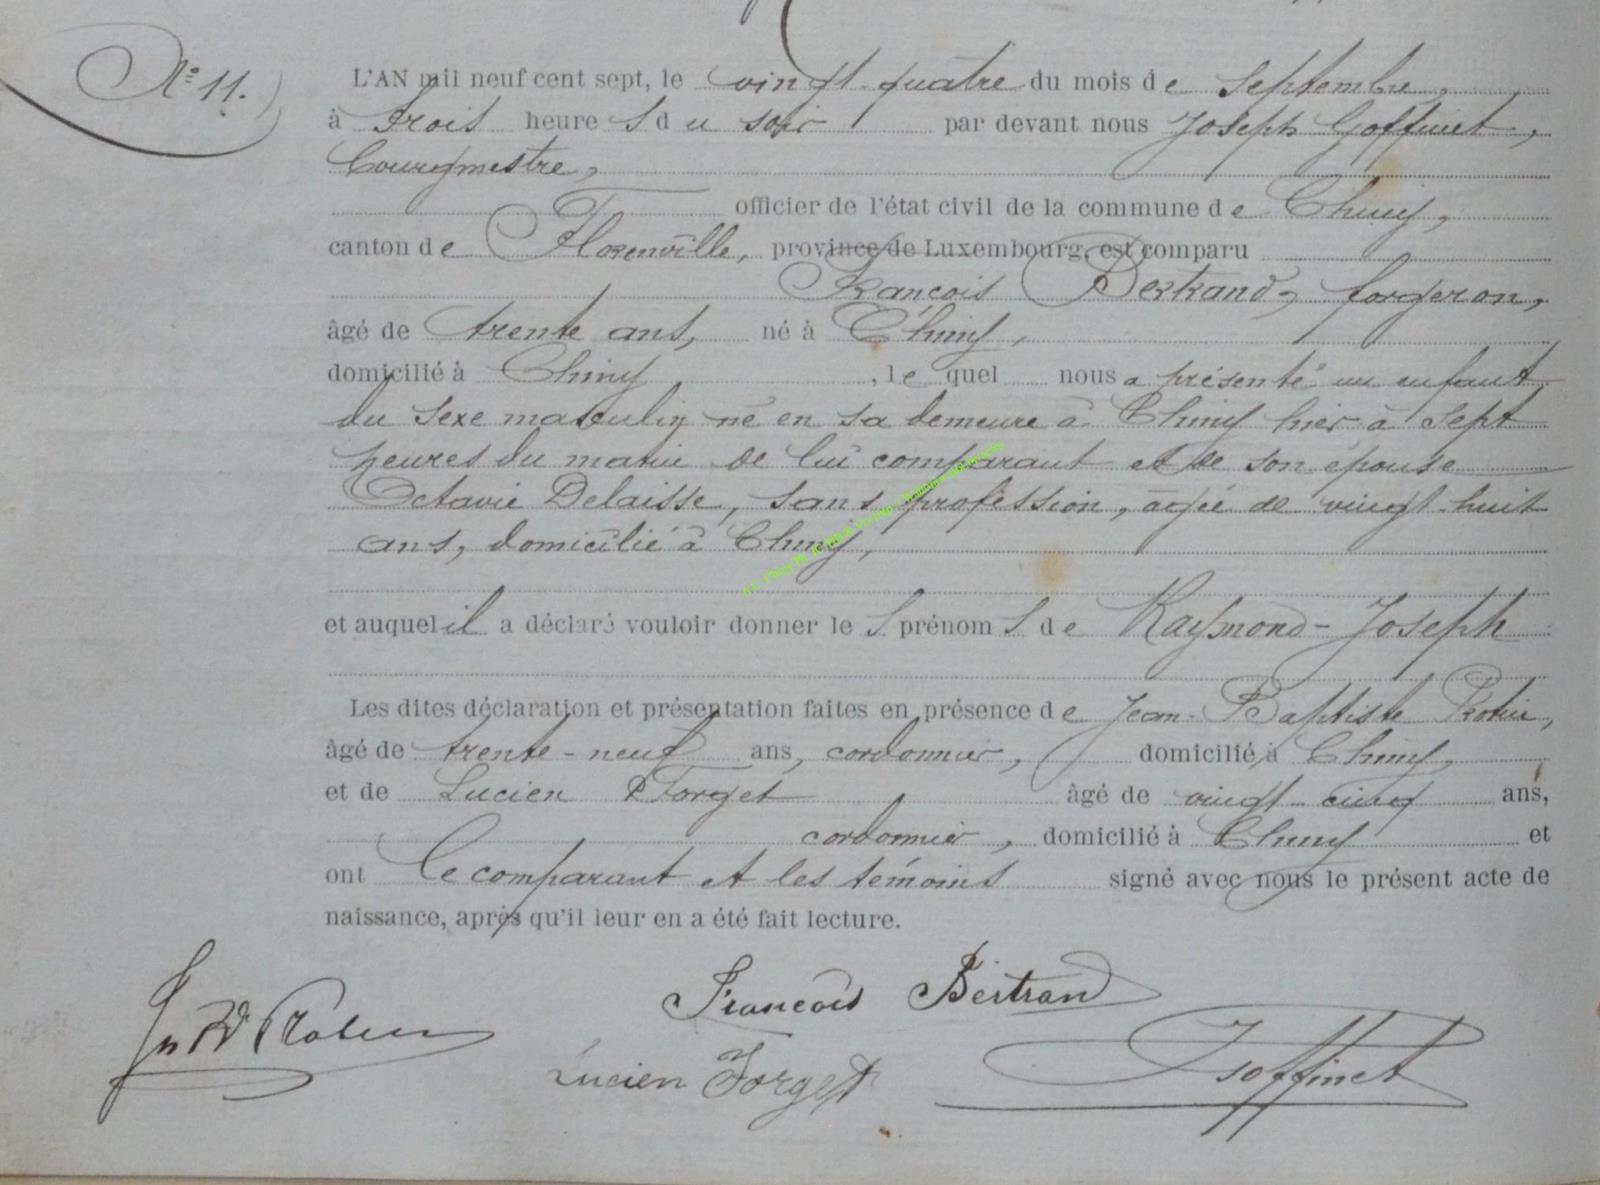 N° 11.
L'AN mil neuf cent sept, le vingt-quatre du mois de Septembre,
à trois heures du soir par devant nous Joseph Goffinet,
bourgmestre,
officier de l'état civil de la commune de Chiny,
canton de Florenville, province de Luxembourg, est comparu
François Bertrand, forgeron,
âgé de trente ans, né à Chiny,
domicilié à Chiny, lequel nous a présenté un enfant
du sexe masculin né en sa demeure à Chiny hier à sept
heures du matin de lui comparant et de son épouse
Octavie Delaisse, sans profession, agée de vingt-huit
ans, domicilié à Chiny,
et auquel il a déclaré vouloir donner les prénoms de Raymond-Joseph
Les dites déclaration et présentation faites en présence de Jean-Baptiste
âgé de trente-neuf ans, cordonnier, domicilié à Chiny,
et de Lucien Forget âgé de vingt-cinq ans,
cordonnier, domicilié à Chiny et
ont le comparant et les témoins signé avec nous le présent acte de
naissance, après qu'il leur en a été fait lecture.
François Bertrand
Lucien Forget
J Goffinet